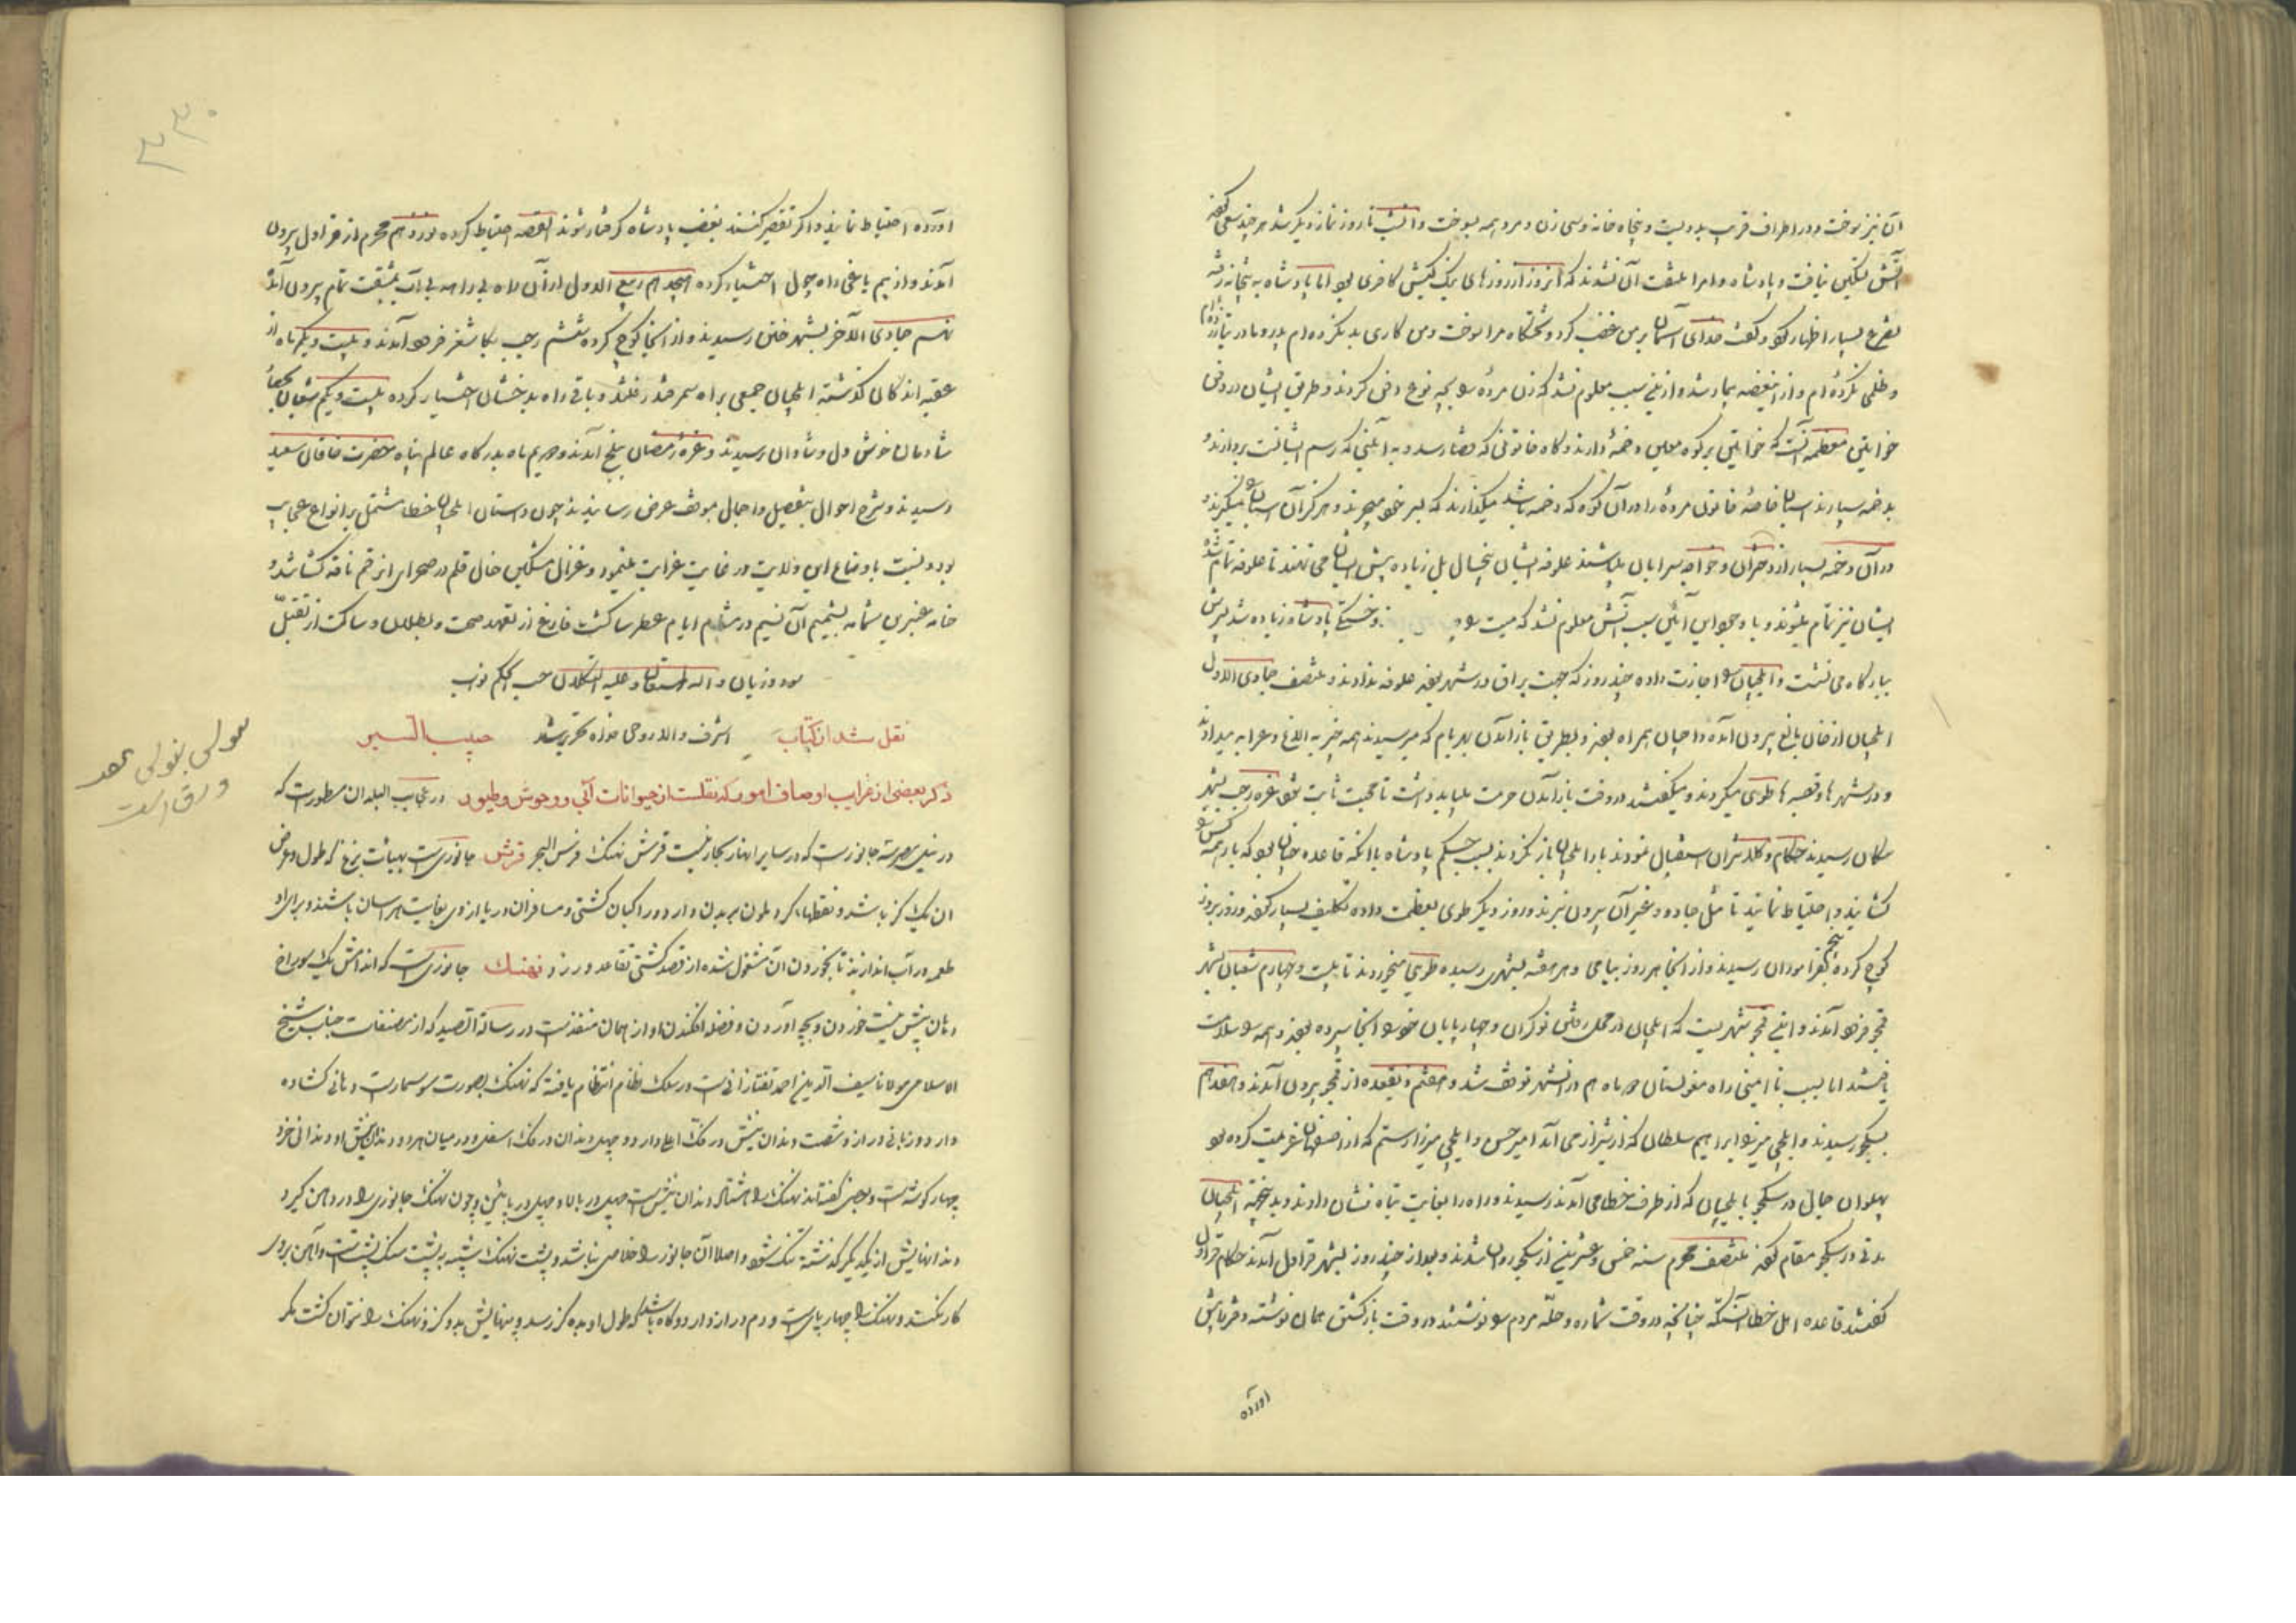 آن نیز بسوخت و در اطراف قرب دویست و پنجاه خانه و سی زن و مرد همه بسوخت و آن شب تا روز نماز دیگر شد هر چند سعی
آتش تسکین نیافت و پادشاه و امرا ملتفت آن نشدند که آن روز از روزهای نیک کیش کافری بود اما پادشاه به بتخانه رفته
تضرع بسیار اظهار کرد و گفت خدای آسمان بر من غضب کرد و تختگاه مرا بسوخت و من کاری بد نکرده‌ام پدر و مادر نیازرده‌ام
و ظلمی نکرده‌ام و از این غصه بیمار شد و از این سبب معلوم نشد که زن مرده را بچه نوع دفن کردند و طریق ایشان در دفن
خوانین معظمه آنست که خوانین بر کوه معین دخمه دارند و گاه خاتونی که قضا رسد به آئینی که رسم ایشانست بردارند و
بدخمه سپارند اسپان خاصه خاتون مرده را در آن کوه که دخمه باشد میگذارند که بسر خود میچرند و هرگز آن اسپان را نمیگیرند و
در آن دخمه بسیار از دختران و خواجه سرایان باشند علوفه ایشان پنج سال بل زیاده پیش ایشان می نهند تا علوفه تمام شده
ایشان نیز تمام میشوند و با وجود این آئین سبب آتش معلوم نشد که میت را و خستگی پادشاه زیاده شد پسرش
ببارگاه می نشست و ایلچیان را اجازت داده چند روز که جهت یراق در شهر بودند علوفه ندادند و منتصف جمادی الاول
ایلچیان از خان بالغ بیرون آمده داجیان همراه بودند و بطریق باز آمدن بهر یام که میرسیدند همه چیز به الاغ و عرابه میدادند
و در شهرها و قصبه ها طوی میکردند و میگفتند در وقت باز آمدن حرمت میباید داشت تا محبت ثابت شود غره رجب بشهر
سکان رسیدند حکام و کلانتران استقبال نمودند بار ایلچیان باز نکردند بسبب حکم پادشاه با آنکه قاعده چنان بود که بار همه
کشایند و احتیاط نمایند تا مثل چاو و غیر آن بیرون نبرند و روز دیگر طوی بعظمت داده تکلیف بسیار کردند و روز بروز
کوچ کرده پنجم بقراموران رسیدند و از آنجا هر روز بیامی و هر هفته بشهری رسیده طویی میخوردند تا بیست و چهارم شعبان بشهر
قمجو فرود آمدند و این قمجو شهریست که ایلچیان در محل رفتن نوکران و چهارپایان خود را آنجا سپرده بودند همه را سلامت
یافتند اما بسبب نا امینی راه مغولستان دو ماه هم در آن شهر توقف شد و هفتم ذیقعده از قمجو بیرون آمدند و هفدهم
بسکجو رسیدند و ایلچی میرزا ابراهیم سلطان که از شیراز می آمد امیر حسن و ایلچی میرزا رستم که از اصفهان عزیمت کرده بود
پهلوان جمال در سکجو با ایلچیان که از طرف خطا می آمدند رسیدند و راه را بغایت تباه نشان دادند و بدین جهة ایلچیان
مدتی در سکجو مقام کردند منتصف محرم سنه خمس و عشرین از سکجو روان شدند و بعد از چند روز بشهر قراول آمدند حکام قراول
گفتند قاعده اهل خطا آنست که چنانچه در وقت شماره و حلیه مردم را نوشتند در وقت باز گشتن همان نوشته و فرمایش
آورده
۳۳۰
آورده احتیاط نمایند و اگر تقصیر کنند بغضب پادشاه گرفتار شوند القصه احتیاط کرده نوزدهم محرم از قراول بیرون
آمدند و از بیم یاغی راه چول اختیار کرده هیجدهم ربیع الاول از آن راه بی راه بی آب بمشقت تمام بیرون آمدند
نهم جمادی الآخر بشهر ختن رسیدند و از آنجا کوچ کرده ششم رجب بکاشغر فرود آمدند و بیست و یکم ماه از
عقبه اندکان گذشته ایلچیان جمعی براه سمرقند رفتند و باقی راه بدخشان اختیار کرده بیست و یکم شعبان بحصار
شادمان خوش دل و شادان رسیدند و غره رمضان ببلخ آمدند و دهم ماه بدرگاه عالم پناه حضرت خاقان سعید
رسیدند و شرح احوال بتفصیل و اجمال بموقف عرض رسانیدند چون داستان ایلچیان خطا مشتمل بر انواع عجایب
بود و نسبت باوضاع این ولایت در غایت غرابت مینمود و غزال مشکین خال قلم در صحرای از رقم نافه کشا شد و
خامه عنبرین شمامه بشمیم آن نسیم در مشام ایام عطرسا گشت فارغ از تعهد صحت و بطلان و ساکت از تقبل
سود و زیان و الله المستعان و علیه التکلان حسب الحکم نواب
نقل شد از کتاب اشرف والا روحی فداه تحریر شد حبیب السیر
ذکر بعضی از غرایب اوصاف امور که نقلست از حیوانات آبی و وحوش و طیور در عجایب البلدان مسطورست که
در نیل مصر سه جانورست که در سایر انهار بحار نیست قرش نهنگ فرس البحر قرش جانوریست بهیئت بزغ که طول و عرض
آن یک گز باشد و نقطهاء گرد ملون بر بدن دارد و راکبان کشتی و مسافران دریا از وی بغایت هراسان باشند و برای او
طعمه در آب اندازند تا بخوردن آن مشغول شده از قصد کشتی تقاعد ورزد و نهنگ جانوریست که اندامش یک سوراخ
دهان بیش نیست خوردن و بچه آوردن و فضله افکندن او از همان منفذست در رسالة الصید که از مصنفات جناب شیخ
الاسلامی مولانا سیف الدین احمد تفتازانیست در سلک نظام انتظام یافته که نهنگ بصورت سوسمارست دهانی کشاده
دارد و زبانی دراز و شصت دندان نیش در فک اعلی دارد و چهل دندان در فک اسفل و در میان هر دو دندان نیش او دندانی خرد
چهار گوشه است و بعضی گفته‌اند نهنگ را هشتاد دندان نیش است چهل در بالا و چهل در پائین و چون نهنگ جانوری را در دهن گیرد
دندانهایش از یکدیگر گذشته تنگ شود و اصلا آن جانور را خلاصی نباشد و پشت نهنگ شبیه به پشت سنگ پشتست و آهن بر وی
کار نکند و نهنگ را چهار پایست و دم دراز دارد و گاه باشد که طول او بده گز رسد و پهنایش بدو گز و نهنگ را نتوان کشت مگر
ورق است